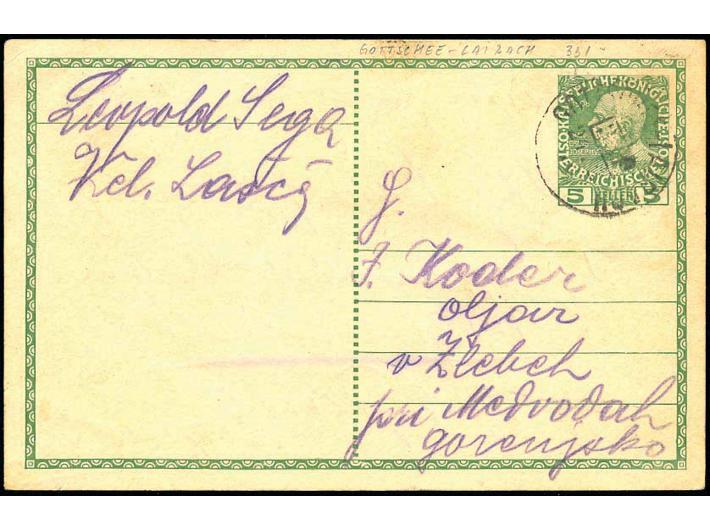 GOTTSCHEE - LAIBACH 331
Leopold Sega
Vel. Lašče
KAISERLICHE KÖNIGLICHE
ÖSTERREICHISCHE
5 HELLER 5
G.
F. Koder
oljar
v Žlebeh
pri Medvodah
gorenjsko